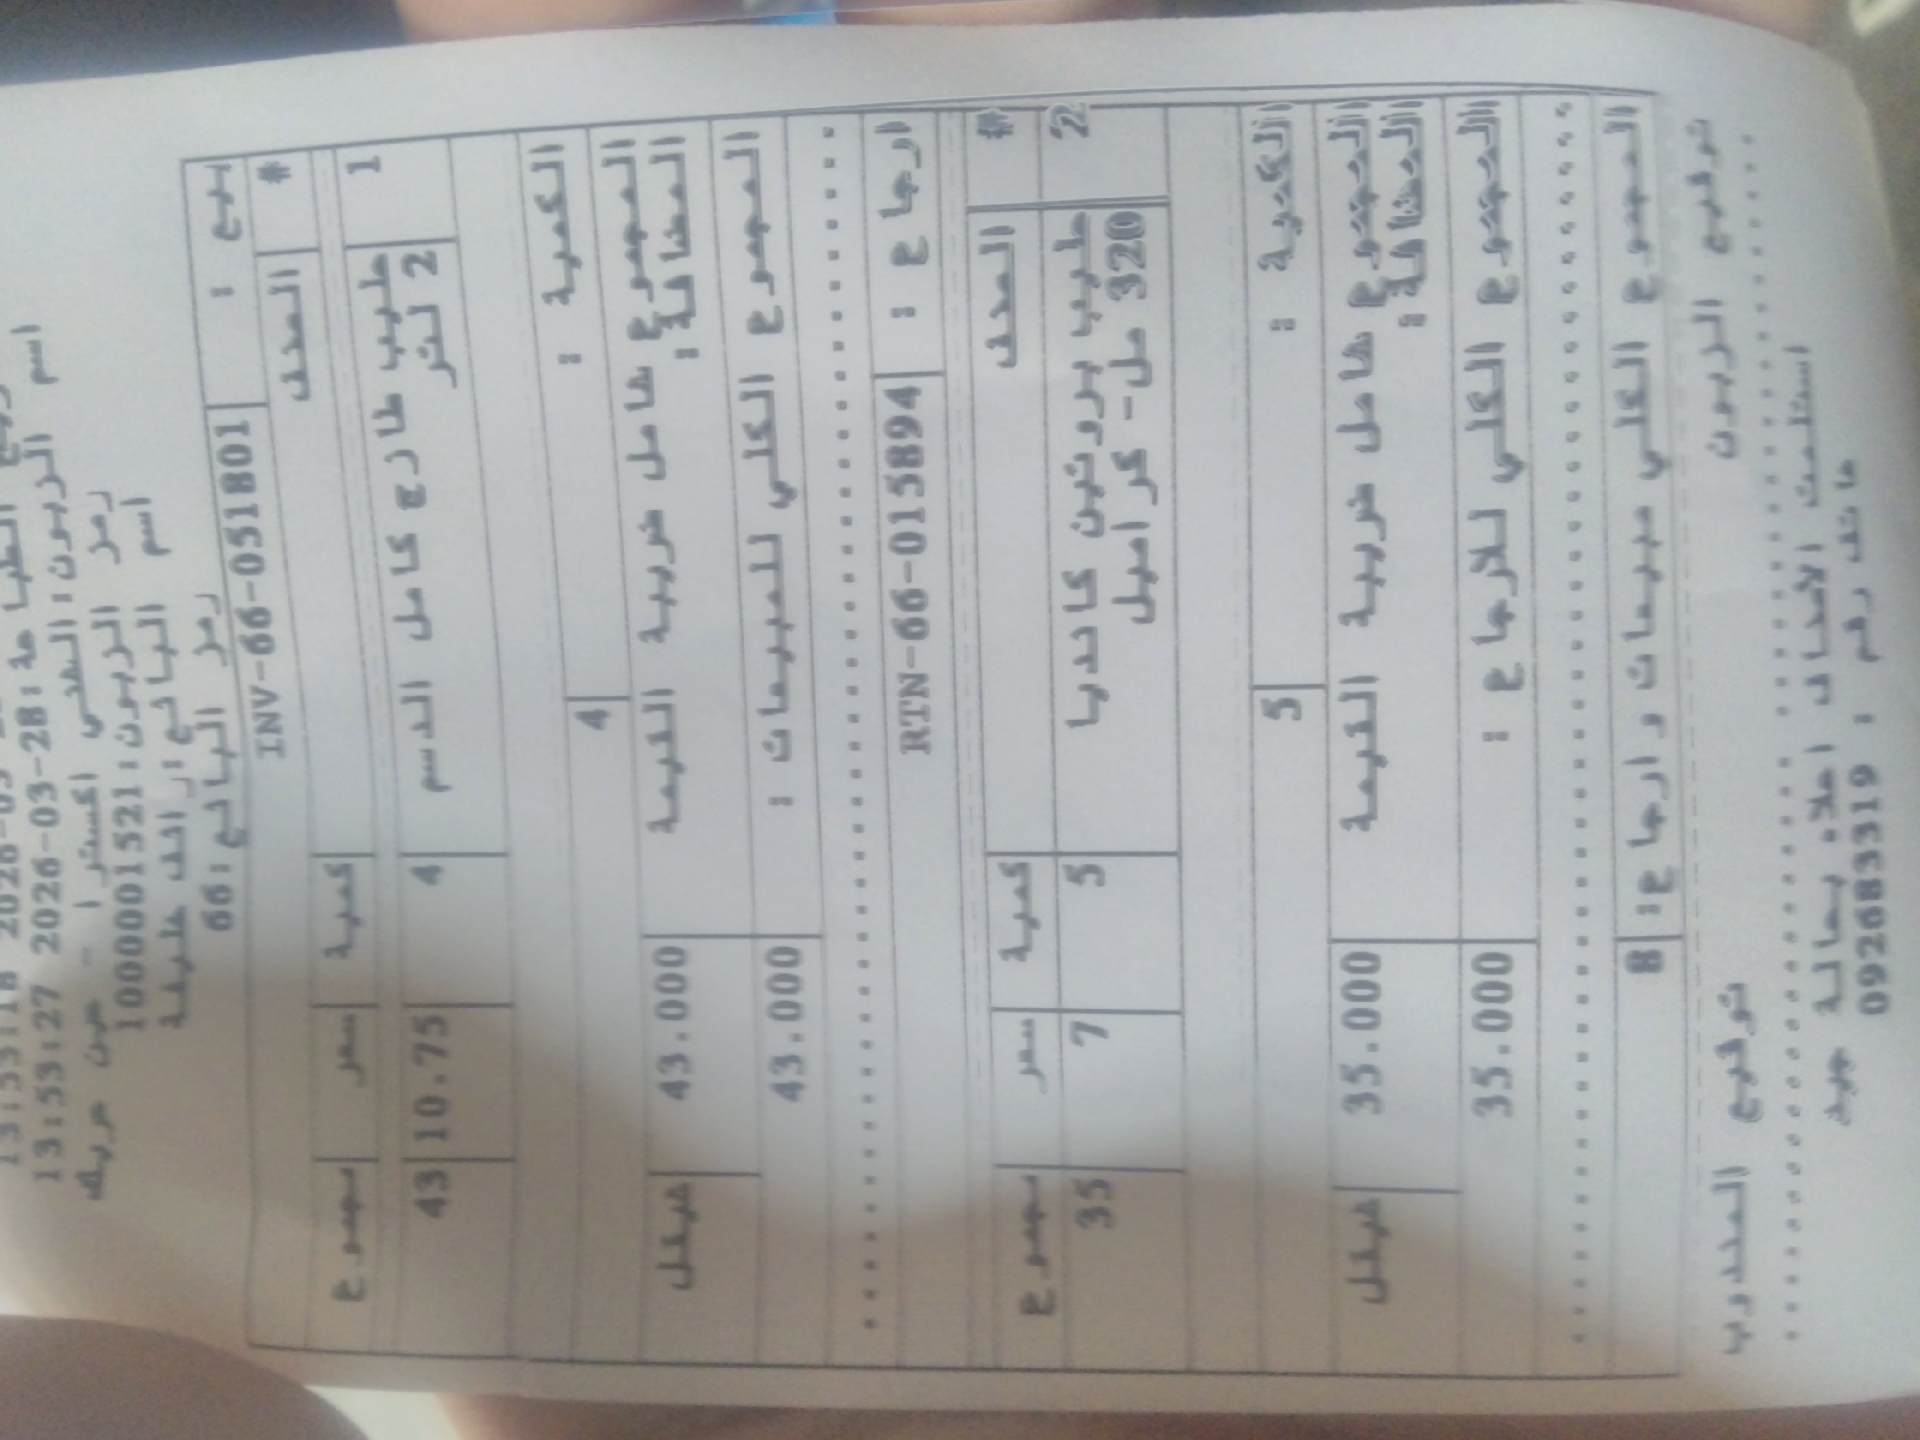 13:53:18 2026-03-28
13:53:27 2026-03-28 :الطباعة
اسم الزبون: الفحي اكسترا - عين حربك
رمز الزبون: 1000001521
اسم البائع ار الف خليفة
رمز البائع: 66
بيع : INV-66-051801
# الصنف كمية سعر مجموع
1 حليب طازج كامل الدسم 4 10.75 43
2 لتر
الكمية : 4
المجموع شامل ضريبة القيمة 43.000 شيقل
المضافة :
المجموع الكلي للمبيعات : 43.000
ارجاع : RTN-66-015894
# الصنف كمية سعر مجموع
2 حليب بروتين كانديا 5 7 35
320 مل- كراميل
الكمية : 5
المجموع شامل ضريبة القيمة 35.000 شيقل
المضافة :
المجموع الكلي للارجاع : 35.000
المجموع الكلي مبيعات وارجاع: 8
توقيع الزبون توقيع المندوب
استلمت الأصناف اعلاه بحالة جيدة
هاتف رقم : 092683319